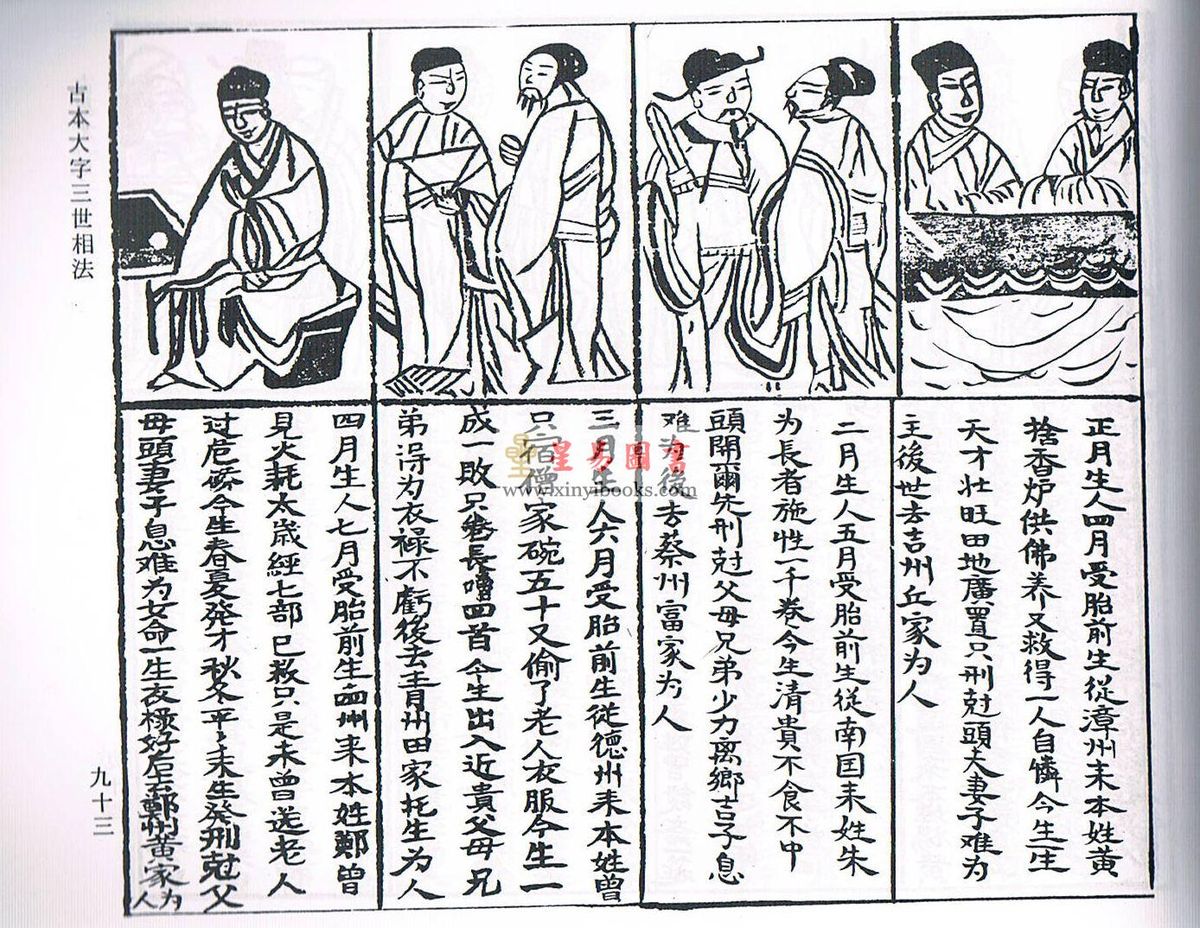 古本大字三世相法
九十三
正月生人四月受胎前生從漳州来本姓黄
捨香炉供佛养又救得一人自憐今生生
天才壮旺田地廣置只刑尅頭夫妻子难为
主後世去吉州丘家为人
二月生人五月受胎前生從南国来姓朱
为長者施性一千巻今生清貴不食不中
頭開爾先刑尅父母兄弟少力离鄉吉子息
难为後去蔡州富家为人
三月生人六月受胎前生從德州来本姓曾
只宿僧家碗五十又偷了老人衣服今生一
成一敗只長嚕四首今生出入近貴父母兄
弟得为衣禄不虧後去青州田家托生为人
四月生人七月受胎前生四州来本姓鄭曾
見火耗太歲經七部已救只是未曾送老人
过危桥今生春夏発才秋冬平末生發刑尅父
母頭妻子息难为女命一生衣禄好后至鄭州黄家为人
皇易圖書
www.xinyibooks.com